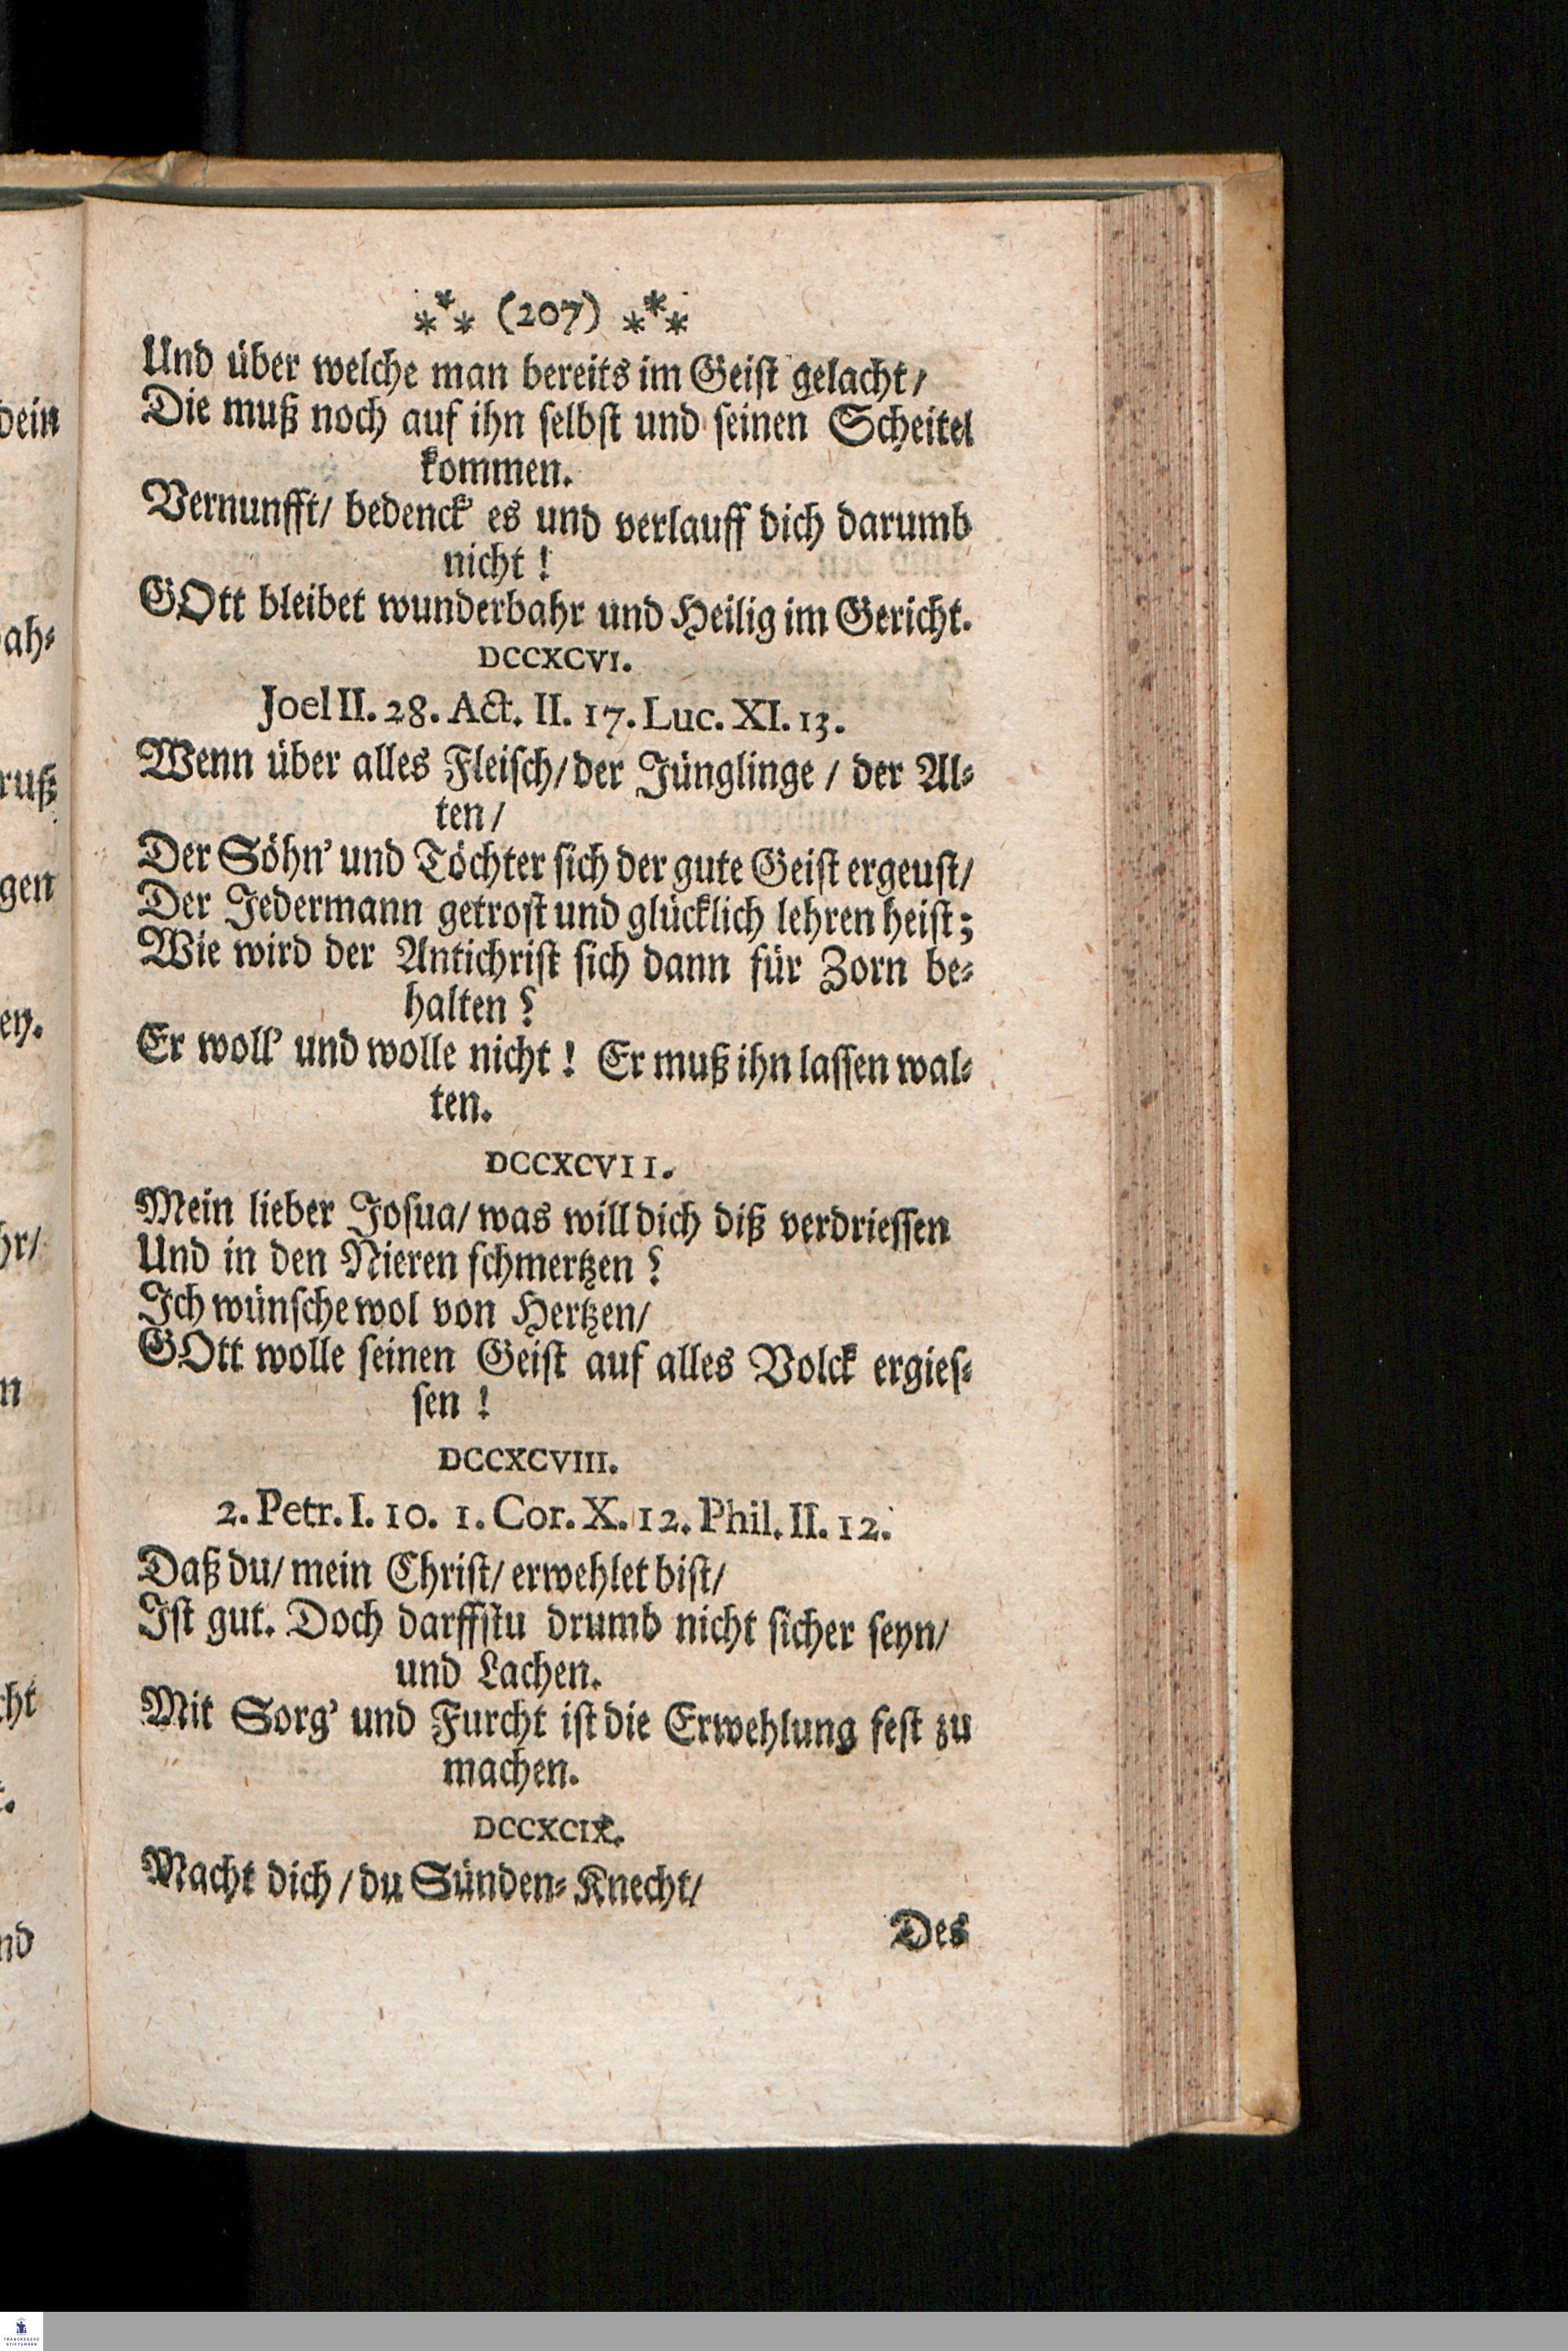 ⁂ (207) ⁂
Und über welche man bereits im Geist gelacht/
Die muß noch auf ihn selbst und seinen Scheitel
kommen.
Vernunfft/ bedenck' es und verlauff dich darumb
nicht!
GOtt bleibet wunderbahr und Heilig im Gericht.
DCCXCVI.
Joel II. 28. Act. II. 17. Luc. XI. 13.
Wenn über alles Fleisch/ der Jünglinge / der Al-
ten/
Der Söhn' und Töchter sich der gute Geist ergeust/
Der Jedermann getrost und glücklich lehren heist;
Wie wird der Antichrist sich dann für Zorn be-
halten?
Er woll' und wolle nicht! Er muß ihn lassen wal-
ten.
DCCXCVII.
Mein lieber Josua/ was will dich diß verdriessen
Und in den Nieren schmertzen?
Ich wünsche wol von Hertzen/
GOtt wolle seinen Geist auf alles Volck ergies-
sen!
DCCXCVIII.
2. Petr. I. 10. 1. Cor. X. 12. Phil. II. 12.
Daß du/ mein Christ/ erwehlet bist/
Ist gut. Doch darffstu drumb nicht sicher seyn/
und Lachen.
Mit Sorg' und Furcht ist die Erwehlung fest zu
machen.
DCCXCIX.
Macht dich / du Sünden-Knecht/
Des
FRANCKESCHE
STIFTUNGEN